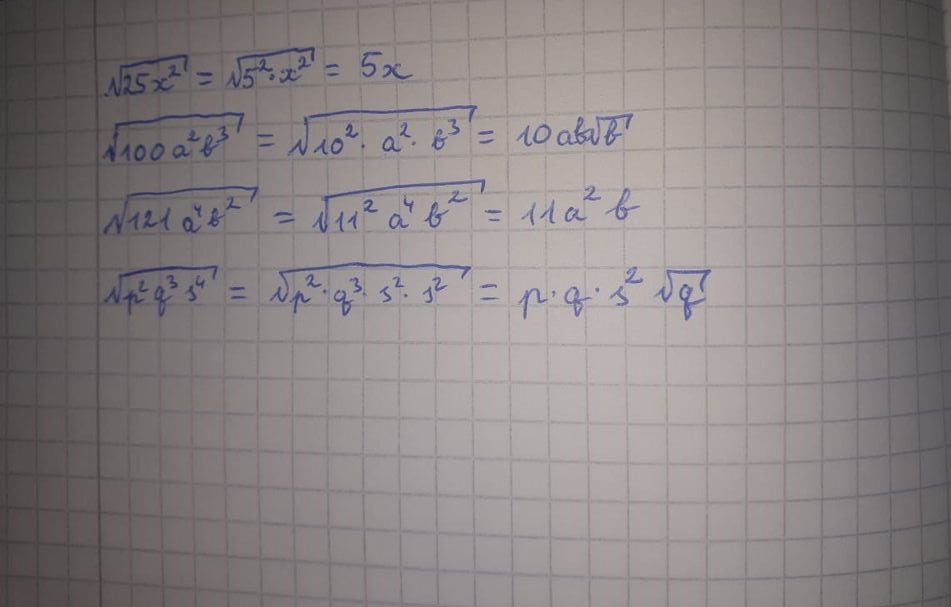 √25x² = √5²·x² = 5x
√100a²b³ = √10²·a²·b³ = 10ab√b
√121a⁴b² = √11² a⁴ b² = 11a² b
√p²q³s⁴ = √p²·q³·s²·s² = p·q·s² √q